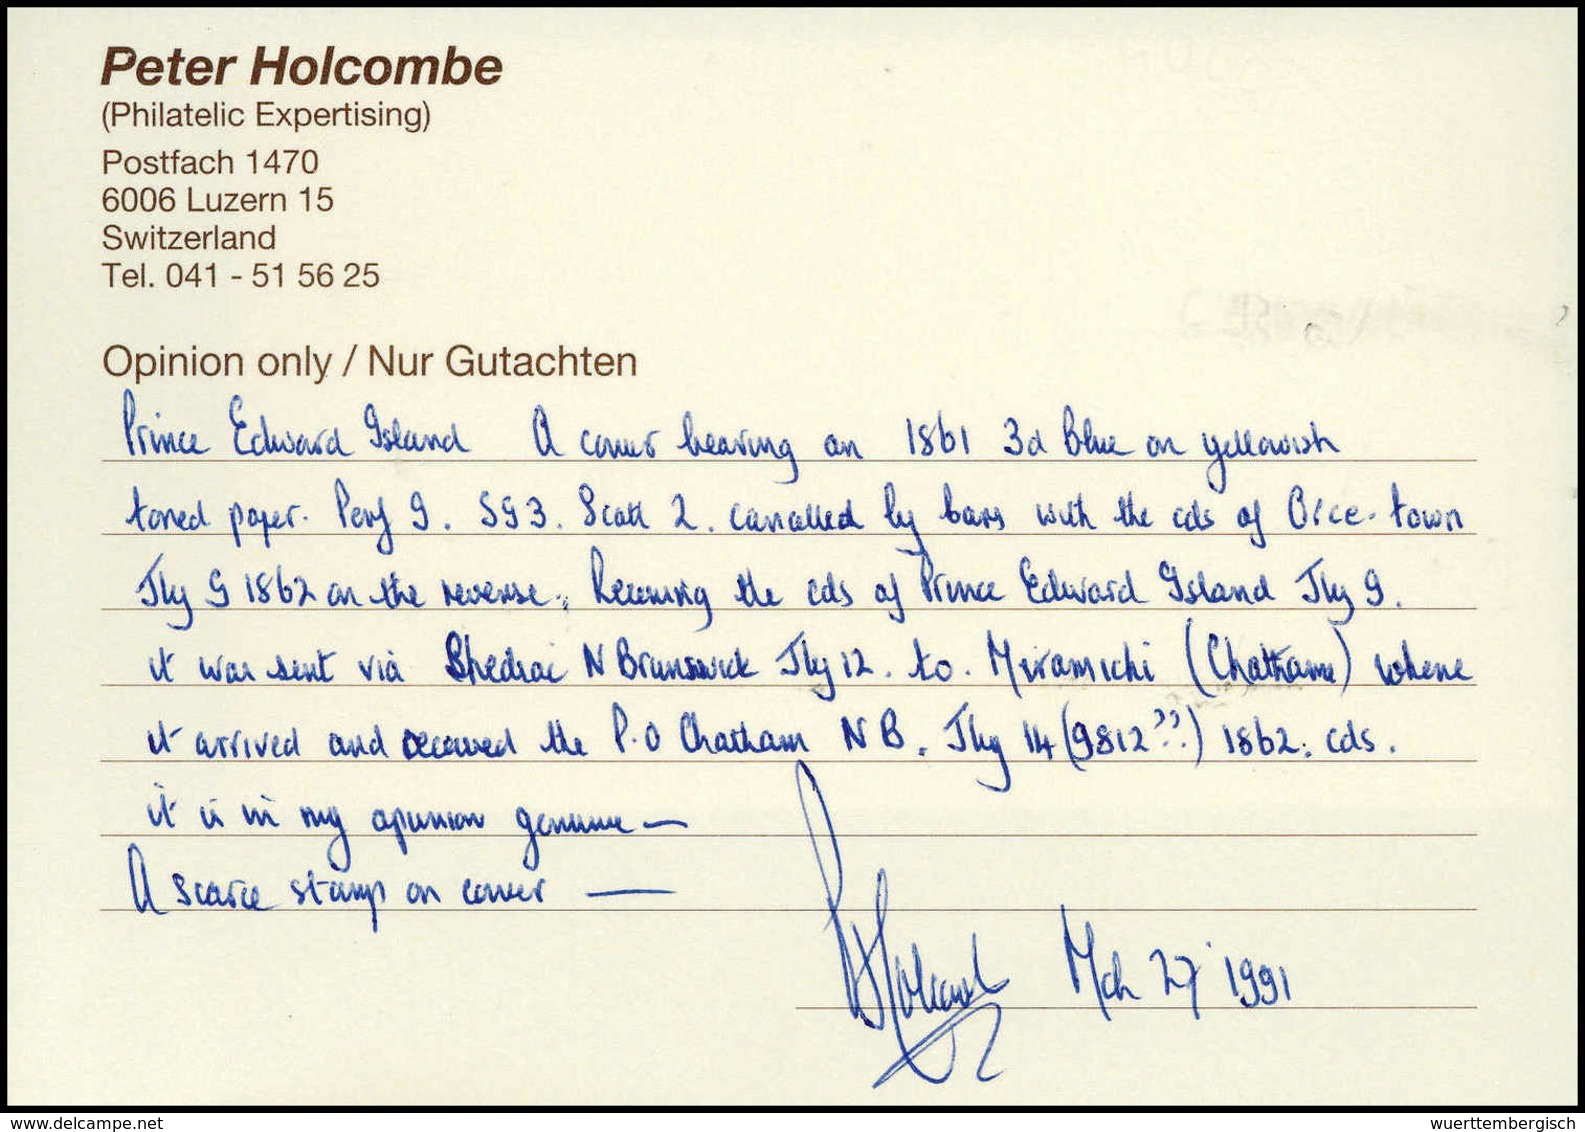 Peter Holcombe
(Philatelic Expertising)
Postfach 1470
6006 Luzern 15
Switzerland
Tel. 041 - 51 56 25
Opinion only / Nur Gutachten
Prince Edward Island A cover bearing an 1861 3d Blue on yellowish
toned paper. Perf 9. SG3. Scott 2. cancelled by bars with the cds of town
Jly 9 1862 on the reverse. Receiving the cds of Prince Edward Island Jly 9.
it was sent via N Brunswick Jly 12. to. Miramichi (Chatham) where
it arrived and received the P.O Chatham N B. Jly 14 (9812??) 1862. cds.
it is in my opinion genuine —
A scarce stamp on cover —
PHolcombe Mch 27 1991
www.delcampe.net
wuerttembergisch